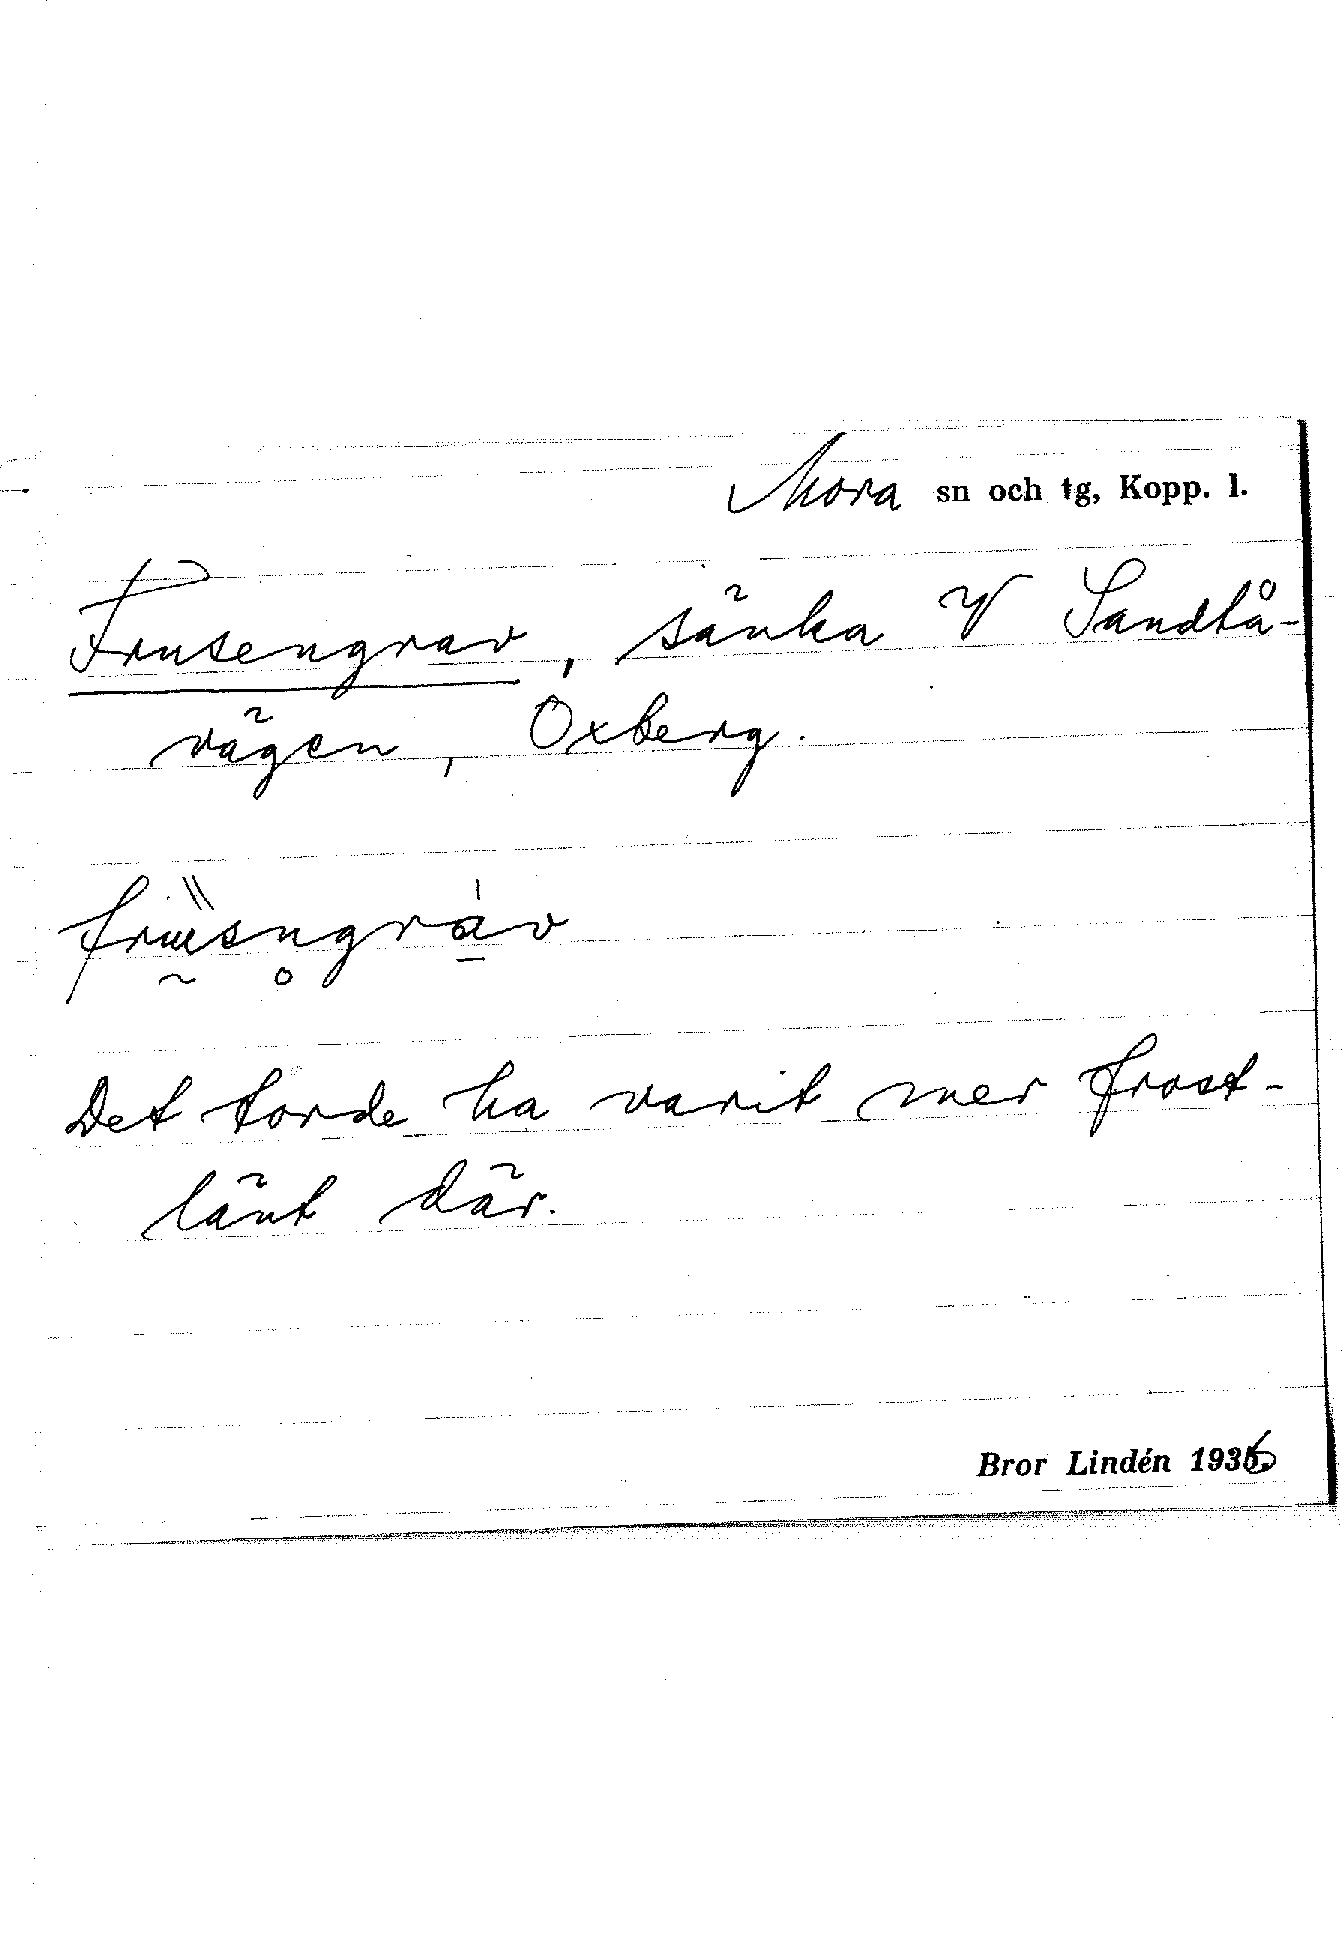 Mora sn och tg, Kopp. l.
Frusengrav, sänka V Sandtå-
vägen, Oxberg.
Det torde ha varit mer frost-
länt där.
Bror Lindén 1936